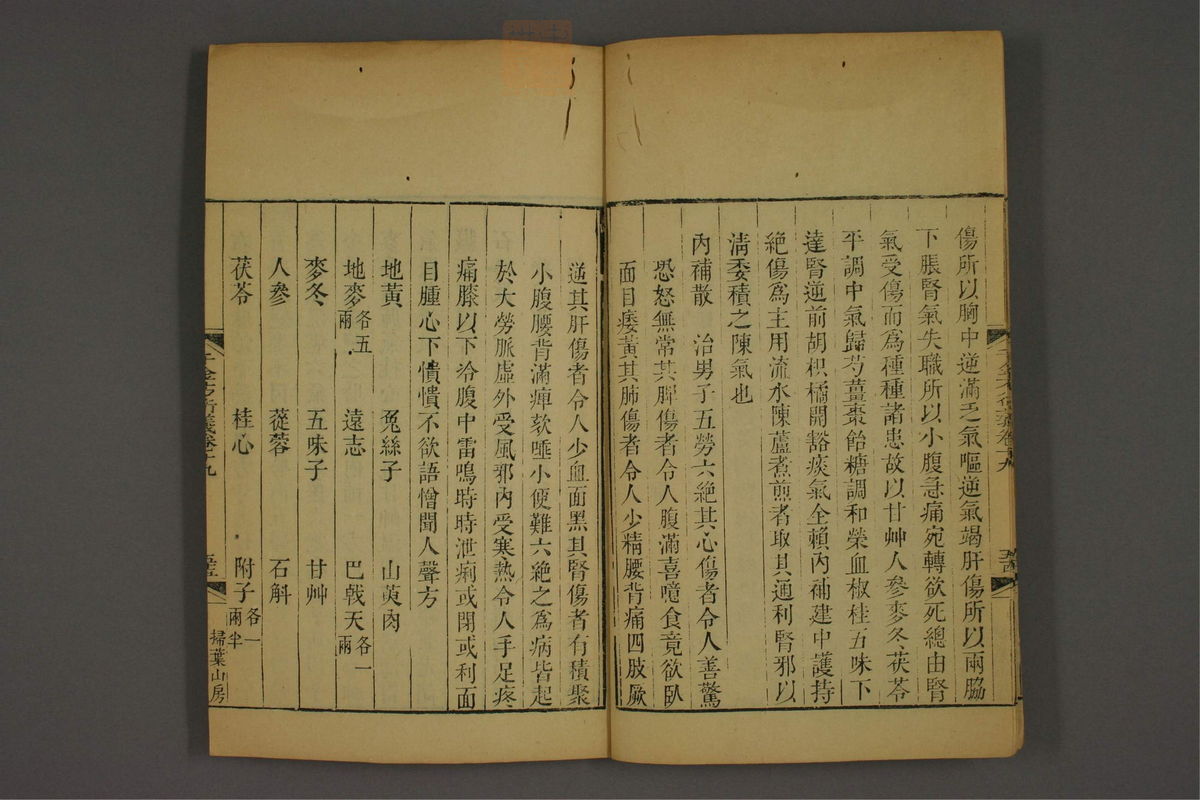 傷所以胸中逆滿乏氣嘔逆氣竭肝傷所以兩脇
下脹腎氣失職所以小腹急痛宛轉欲死總由腎
氣受傷而爲種種諸患故以甘艸人參麥冬茯苓
平調中氣歸芍薑棗飴糖調和榮血椒桂五味下
達腎逆前胡枳橘開豁痰氣全賴內補建中護持
絕傷爲主用流水陳蘆煮煎者取其通利腎邪以
淸委積之陳氣也
內補散 治男子五勞六絕其心傷者令人善驚
恐怒無常其脾傷者令人腹滿喜噫食竟欲臥
面目痿黃其肺傷者令人少精腰背痛四肢厥
逆其肝傷者令人少血面黑其腎傷者有積聚
小腹腰背滿痺欬唾小便難六絕之爲病皆起
於大勞脈虛外受風邪內受寒熱令人手足疼
痛膝以下冷腹中雷鳴時時泄痢或閉或利面
目腫心下憒憒不欲語憎聞人聲方
地黃 兔絲子 山萸肉
地麥各五兩 遠志 巴戟天各一兩
麥冬 五味子 甘艸
人參 蓯蓉 石斛
茯苓 桂心 附子各一兩半
千金方衍義卷十九
掃葉山房